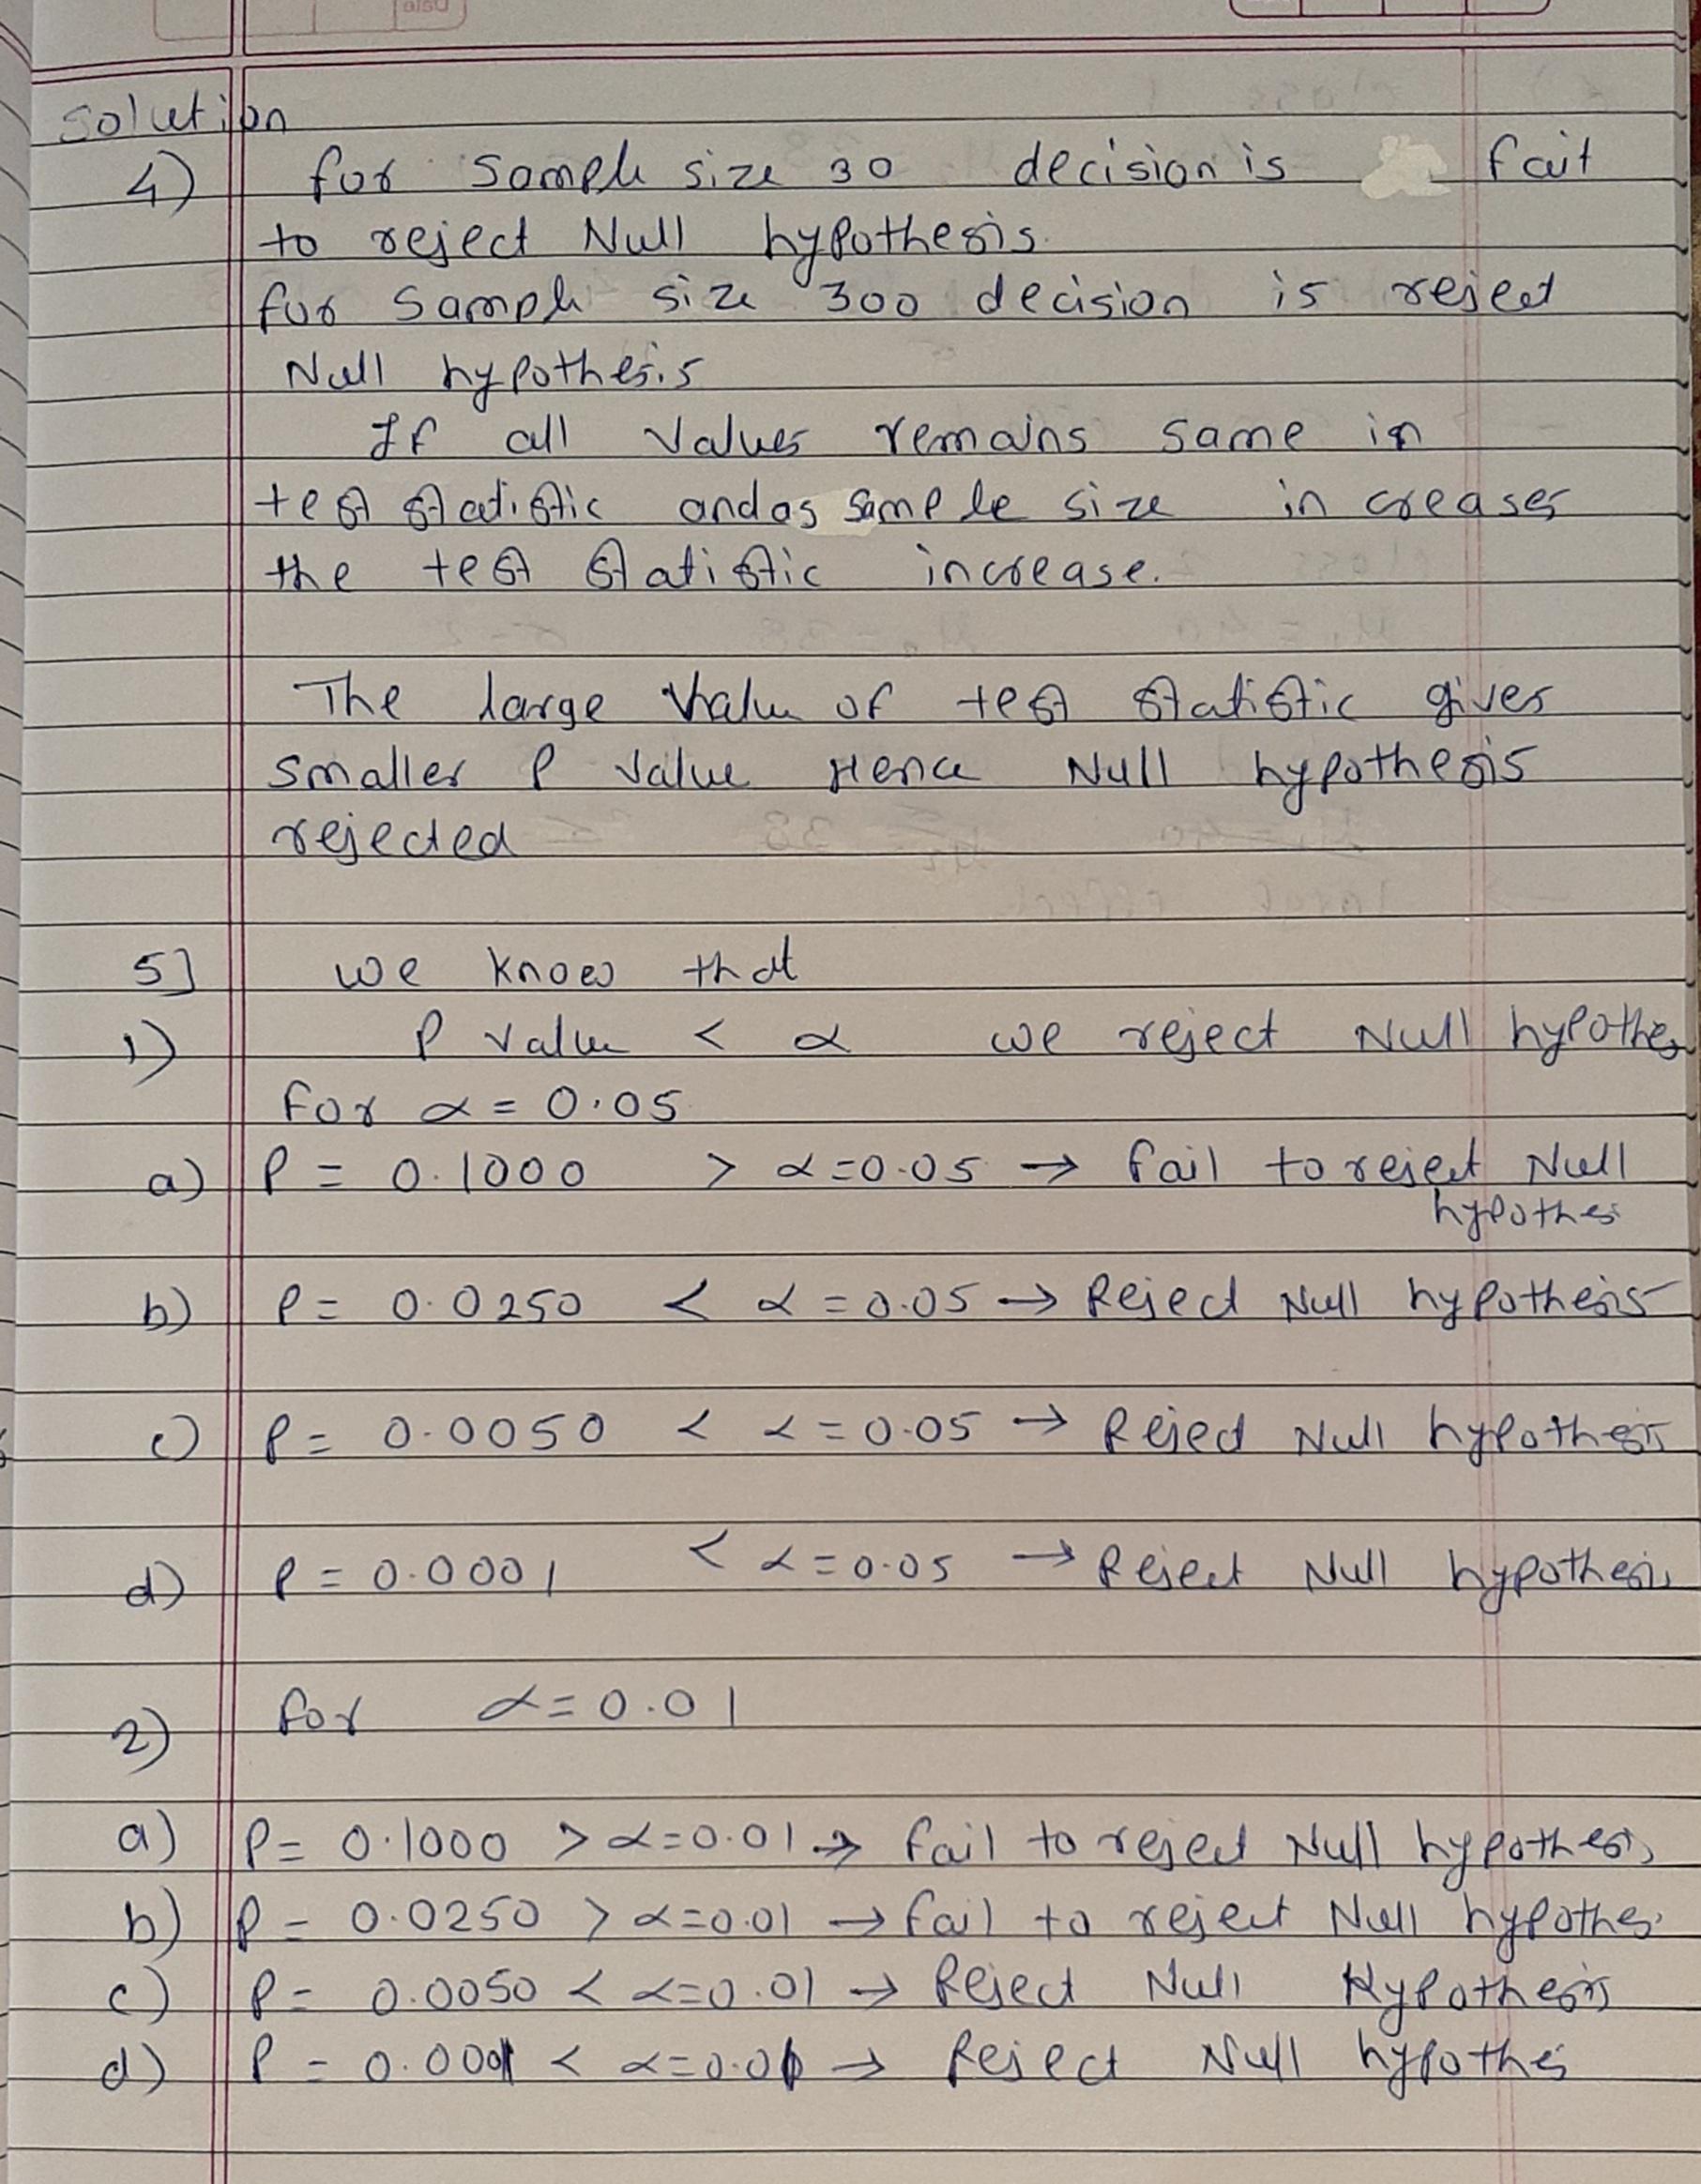 Solution
4) for Sample size 30 decision is fail
to reject Null hypothesis.
for Sample size 300 decision is reject
Null hypothesis
If all Values remains same in
test statistic and as sample size increases
the test statistic increase.
The large Value of test statistic gives
smaller P value Hence Null hypothesis
rejected
5] we know that
1) P value < α we reject Null hypothes
for α = 0.05
a) P = 0.1000 > α=0.05 → fail to reject Null
hypothes
b) P = 0.0250 < α = 0.05 → Reject Null hypothesis
c) P = 0.0050 < α = 0.05 → Reject Null hypothesis
d) P = 0.0001 < α = 0.05 → Reject Null hypothesis
2) for α = 0.01
a) P = 0.1000 > α=0.01 → fail to reject Null hypothesis
b) P = 0.0250 > α=0.01 → fail to reject Null hypothes
c) P = 0.0050 < α=0.01 → Reject Null Hypothesis
d) P = 0.0001 < α=0.01 → Reject Null hypothes